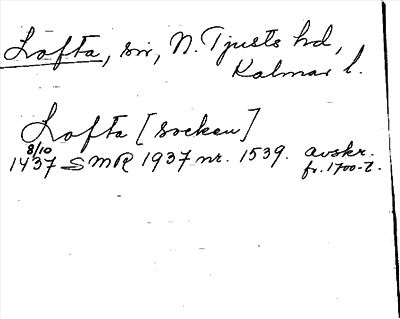 Lofta, sn, N. Tjusts hd,
Kalmar l.
Lofta [socken]
8/10
1437 SMR 1937 nr. 1539. avskr.
fr. 1700-t.